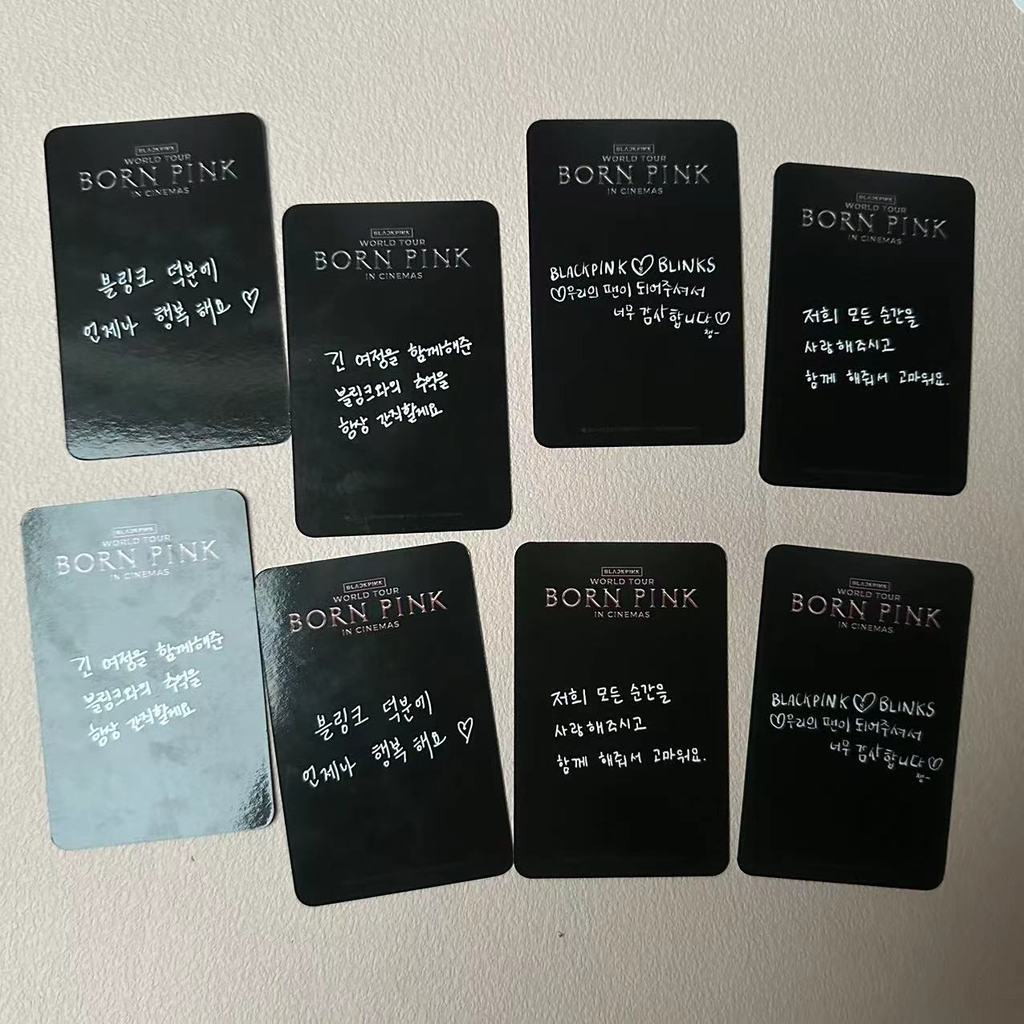 BLACKPINK
WORLD TOUR
BORN PINK
IN CINEMAS
블링크 덕분에
언제나 행복해요♡
BLACKPINK
WORLD TOUR
BORN PINK
IN CINEMAS
긴 여정을 함께해준
블링크와의 추억을
항상 간직할게요
BLACKPINK
WORLD TOUR
BORN PINK
IN CINEMAS
BLACKPINK♡BLINKS
♡우리의 팬이 되어주셔서
너무 감사합니다♡
챙-
BLACKPINK
WORLD TOUR
BORN PINK
IN CINEMAS
저희 모든 순간을
사랑해주시고
함께 해줘서 고마워요.
BLACKPINK
WORLD TOUR
BORN PINK
IN CINEMAS
긴 여정을 함께해준
블링크와의 추억을
항상 간직할게요
BLACKPINK
WORLD TOUR
BORN PINK
IN CINEMAS
블링크 덕분에
언제나 행복해요♡
BLACKPINK
WORLD TOUR
BORN PINK
IN CINEMAS
저희 모든 순간을
사랑해주시고
함께 해줘서 고마워요.
BLACKPINK
WORLD TOUR
BORN PINK
IN CINEMAS
BLACKPINK♡BLINKS
♡우리의 팬이 되어주셔서
너무 감사합니다♡
챙-